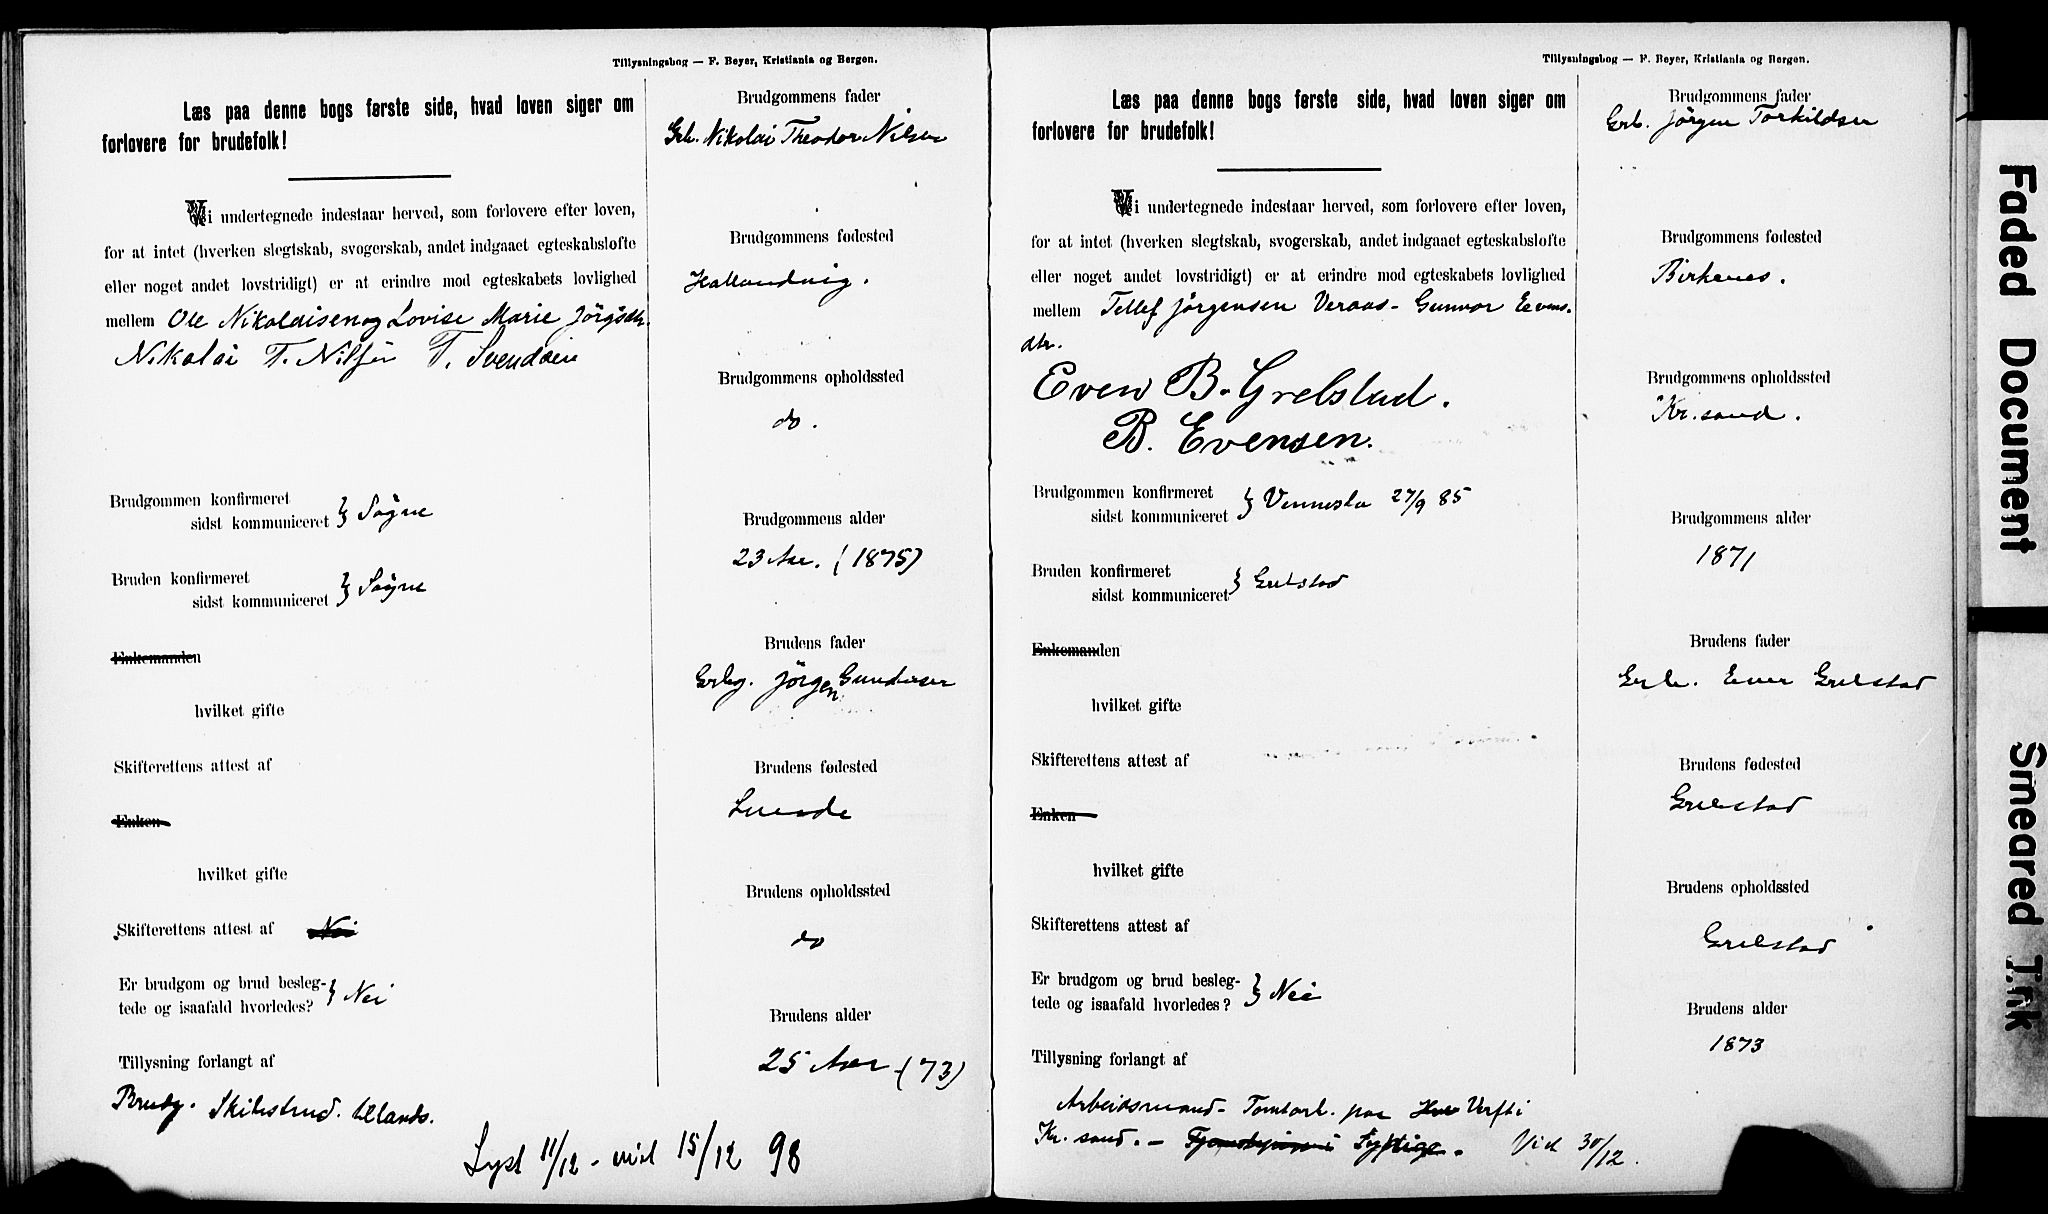 Tillysningsbog — F. Beyer, Kristiania og Bergen.
Læs paa denne bogs første side, hvad loven siger om
forlovere for brudefolk!
Vi undertegnede indestaar herved, som forlovere efter loven,
for at intet (hverken slegtskab, svogerskab, andet indgaaet egteskabsløfte
eller noget andet lovstridigt) er at erindre mod egteskabets lovlighed
mellem Ole Nikolaisen og Lovise Marie Jörgsdtr.
Nikolai T. Nilsen T. Svendsen
Brudgommen konfirmeret
sidst kommuniceret } Søgne
Bruden konfirmeret
sidst kommuniceret } Søgne
Enkemanden
hvilket gifte
Skifterettens attest af
Enken
hvilket gifte
Skifterettens attest af Nei
Er brudgom og brud besleg-
tede og isaafald hvorledes? } Nei
Tillysning forlangt af
Brudg. Skibstmd. Udlands.
Lyst 11/12 - viet 15/12 98
Brudgommens fader
Grb. Nikolai Theodor Nilsen
Brudgommens fødested
Hallandvig.
Brudgommens opholdssted
do.
Brudgommens alder
23 Aar. (1875)
Brudens fader
Grbg. Jörgen Gundersen
Brudens fødested
Lunde
Brudens opholdssted
do
Brudens alder
25 Aar (73)
Tillysningsbog — F. Beyer, Kristiania og Bergen.
Læs paa denne bogs første side, hvad loven siger om
forlovere for brudefolk!
Vi undertegnede indestaar herved, som forlovere efter loven,
for at intet (hverken slegtskab, svogerskab, andet indgaaet egteskabsløfte
eller noget andet lovstridigt) er at erindre mod egteskabets lovlighed
mellem Tellef Jörgensen Veraas - Gunvor Evens-
dtr.
Even B. Grelstad.
B. Evensen.
Brudgommen konfirmeret
sidst kommuniceret } Vennesla 27/9 85
Bruden konfirmeret
sidst kommuniceret } Grelstad
Enkemanden
hvilket gifte
Skifterettens attest af
Enken
hvilket gifte
Skifterettens attest af
Er brudgom og brud besleg-
tede og isaafald hvorledes? } Nei
Tillysning forlangt af
Arbeidsmand - Tomtarb. paa Verft i
Kr.sand. - Vid 30/12.
Brudgommens fader
Grb. Jörgen Torkildsen
Brudgommens fødested
Birkenes.
Brudgommens opholdssted
Kr.sand.
Brudgommens alder
1871
Brudens fader
Grb. Even Grelstad
Brudens fødested
Grelstad
Brudens opholdssted
Grelstad
Brudens alder
1873
Faded Document
Smeared Ink